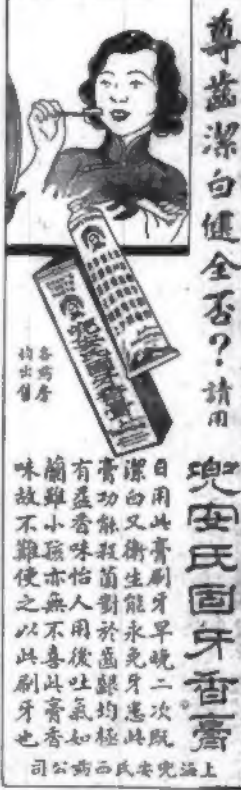 尊齒潔白健全否?請用
兜安氏固牙香膏
各藥房
均出售
兜安氏固牙香膏
日用此膏刷牙早晚二次既
潔白又衛生能永免牙患此
膏功能殺菌對於齒齦均極
有益香味怡人用後吐氣如
蘭雖小孩亦無不喜此膏香
味故不難使之以此刷牙也
上海兜安氏西藥公司